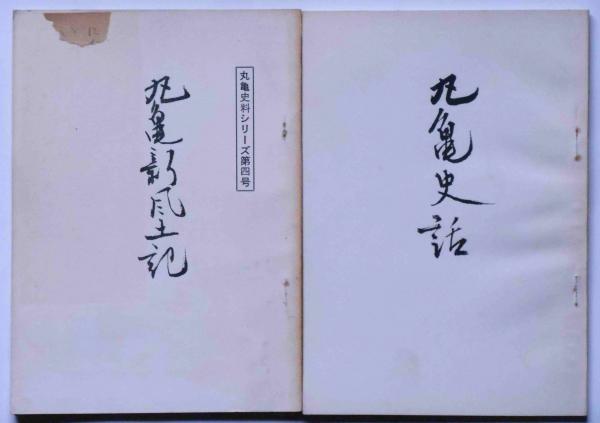 丸亀史話
丸亀史料シリーズ第四号
丸亀新風土記